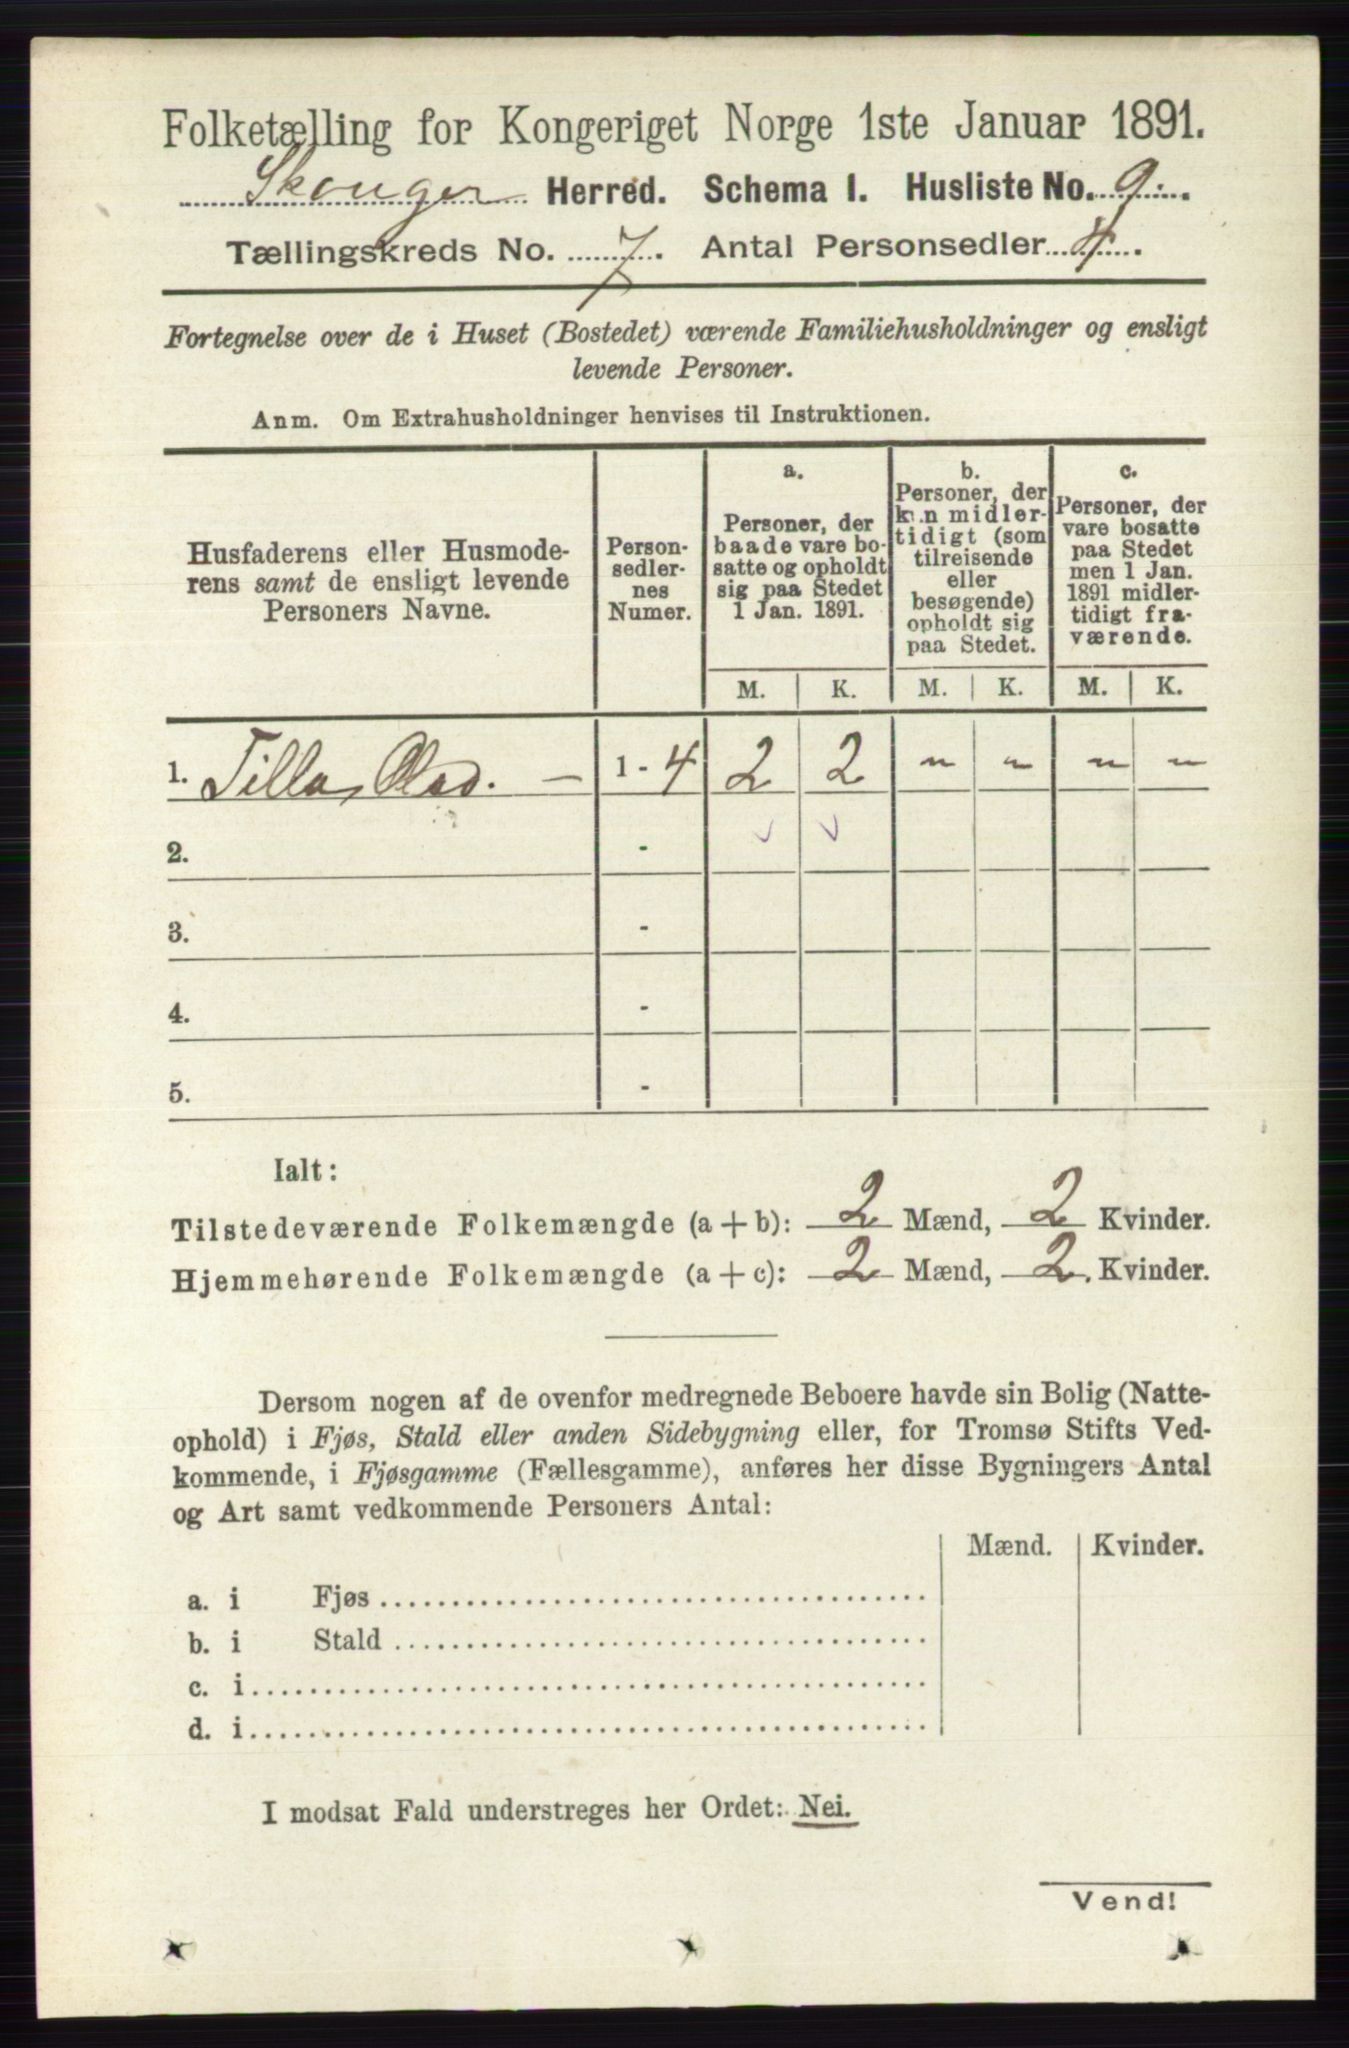 Folketælling for Kongeriget Norge 1ste Januar 1891.
Skouger Herred. Schema I. Husliste No. 9.
Tællingskreds No. 7. Antal Personsedler 4.
Fortegnelse over de i Huset (Bostedet) værende Familiehusholdninger og ensligt
levende Personer.
Anm. Om Extrahusholdninger henvises til Instruktionen.
Husfaderens eller Husmode-
rens samt de ensligt levende
Personers Navne.
Person-
sedler-
nes
Numer.
a.
Personer, der
baade vare bo-
satte og opholdt
sig paa Stedet
1 Jan. 1891.
b.
Personer, der
kun midler-
tidigt (som
tilreisende
eller
besøgende)
opholdt sig
paa Stedet.
c.
Personer, der
vare bosatte
paa Stedet
men 1 Jan.
1891 midler-
tidigt fra-
værende.
M. K. M. K. M. K.
1. Tilla, Olad. — 1 - 4 2 2 " " " "
2. -
3. -
4. -
5. -
Ialt:
Tilstedeværende Folkemængde (a + b): 2 Mænd, 2 Kvinder.
Hjemmehørende Folkemængde (a + c): 2 Mænd, 2. Kvinder.
Dersom nogen af de ovenfor medregnede Beboere havde sin Bolig (Natte-
ophold) i Fjøs, Stald eller anden Sidebygning eller, for Tromsø Stifts Ved-
kommende, i Fjøsgamme (Fællesgamme), anføres her disse Bygningers Antal
og Art samt vedkommende Personers Antal:
Mænd. Kvinder.
a. i Fjøs
b. i Stald
c. i
d. i
I modsat Fald understreges her Ordet: Nei.
Vend!